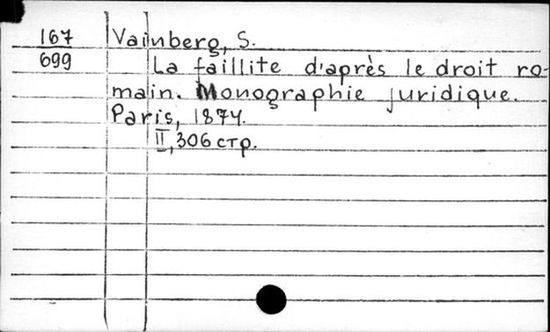 167 Vainberg, S.
699 La faillite d'après le droit ro-
main. Monographie juridique.
Paris, 1874.
II, 306 стр.